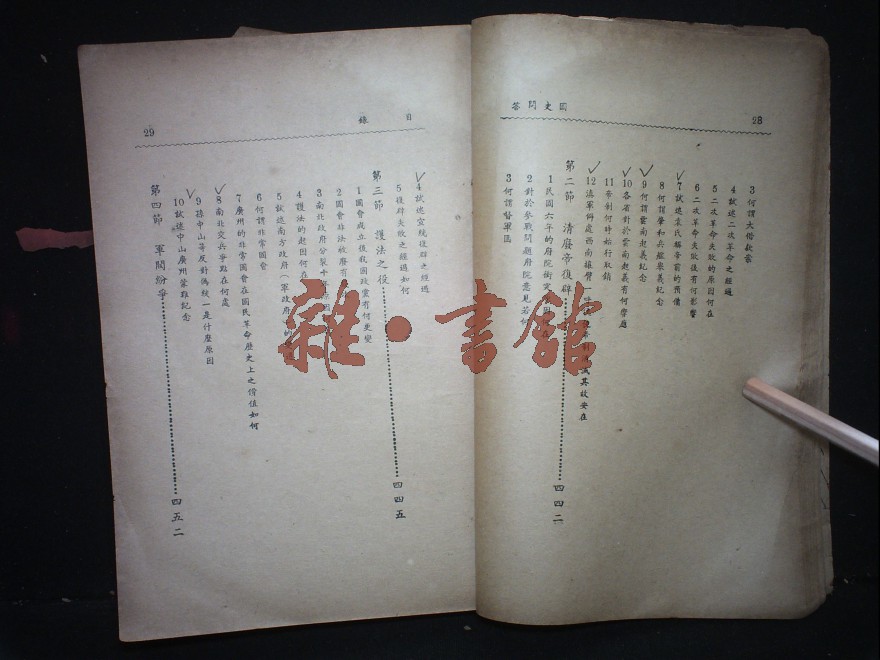 國史問答
28
3 何謂大借款案
4 試述二次革命之經過
5 二次革命失敗的原因何在
6 二次革命失敗後有何影響
7 試述袁氏稱帝前的預備
8 何謂肇和兵艦舉義紀念
9 何謂雲南起義紀念
10 各省對於雲南起義有何響應
11 帝制何時始行取銷
12 滇軍僻處西南振臂一 其故安在
第二節 清廢帝復辟 四四二
1 民國六年的府院衝突
2 對於參戰問題府院意見若何
3 何謂督軍團
目錄
29
4 試述宣統復辟之經過
5 復辟失敗之經過如何
第三節 護法之役 四四五
1 國會成立後我國政黨有何更變
2 國會非法被廢有
3 南北政府分裂十年原因
4 護法的起因何在
5 試述南方政府(軍政府)的
6 何謂非常國會
7 廣州的非常國會在國民革命歷史上之價值如何
8 南北交兵爭點在何處
9 孫中山等反對偽統一是什麼原因
10 試述中山廣州蒙難紀念
第四節 軍閥紛爭 四五二
雜·書館